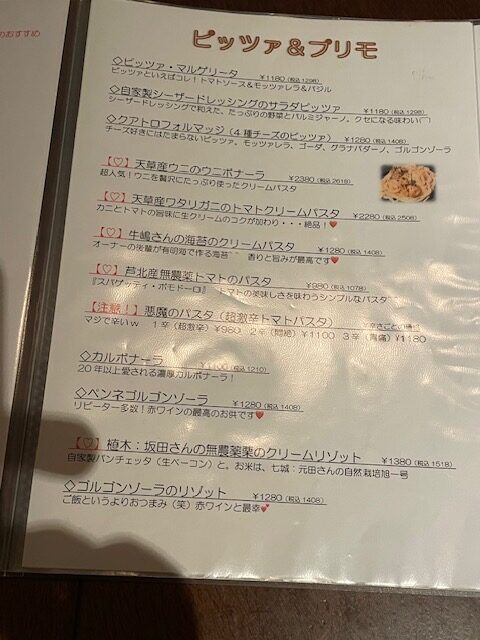 のおすすめ
ピッツァ&プリモ
◇ピッツァ・マルゲリータ ¥1180(税込1298)
ピッツァといえばコレ!トマトソース&モッツァレラ&バジル
◇自家製シーザードレッシングのサラダピッツァ ¥1180(税込1298)
シーザードレッシングで和えた、たっぷりの野菜とパルミジャーノ、クセになる味わい(^^)
◇クアトロフォルマッジ(4種チーズのピッツァ) ¥1280(税込1408)
チーズ好きにはたまらないピッツァ。モッツァレラ、ゴーダ、グラナパダーノ、ゴルゴンゾーラ
【♡】天草産ウニのウニボナーラ ¥2380(税込2618)
超人気!ウニを贅沢にたっぷり使ったクリームパスタ
【♡】天草産ワタリガニのトマトクリームパスタ ¥2280(税込2508)
カニとトマトの旨味に生クリームのコクが加わり・・・絶品!♥
【♡】牛嶋さんの海苔のクリームパスタ ¥1280(税込1408)
オーナーの後輩が有明海で作る海苔 香りと旨みが最高です♥
【♡】芦北産無農薬トマトのパスタ ¥980(税込1078)
『スパゲッティ・ポモドーロ』 トマトの美味しさを味わうシンプルなパスタ
【注意!】悪魔のパスタ(超激辛トマトパスタ)
マジで辛いw 1辛(超激辛)¥980 2辛(悶絶)¥1100 3辛(胃痛)¥1180
◇カルボナーラ ¥1100(税込1210)
20年以上愛される濃厚カルボナーラ!
◇ペンネゴルゴンゾーラ ¥1280(税込1408)
リピーター多数!赤ワインの最高のお供です♥
【♡】植木:坂田さんの無農薬栗のクリームリゾット ¥1380(税込1518)
自家製パンチェッタ(生ベーコン)と。お米は、七城:元田さんの自然栽培旭一号
◇ゴルゴンゾーラのリゾット ¥1280(税込1408)
ご飯というよりおつまみ(笑)赤ワインと最幸💕